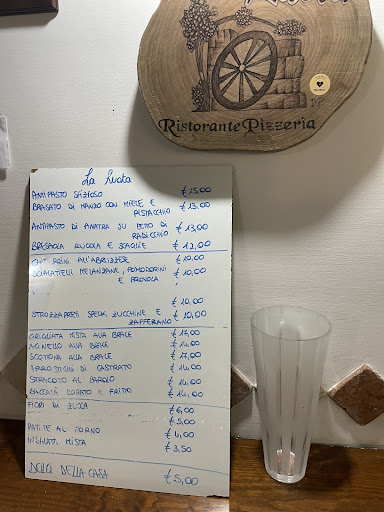 Ristorante Pizzeria
La Ruota
ANTIPASTO SFIZIOSO € 15,00
BRASATO DI MANZO CON MIELE E PISTACCHIO € 13,00
ANTIPASTO DI ANATRA SU LETTO DI RADICCHIO € 13,00
BRESAOLA RUCOLA E SCAGLIE € 12,00
ALL'ABRUZZESE € 10,00
MELANZANE, POMODORINI € 10,00
E PROVOLA
€ 10,00
STROZZAPRETI SPECK, ZUCCHINE E € 10,00
ZAFFERANO
GRIGLIATA MISTA ALLA BRACE
AGNELLO ALLA BRACE € 14,00
SCOTTONA ALLA BRACE
DI CASTRATO € 14,00
STRACOTTO AL BAROLO € 14,00
BACCALÀ DORATO E FRITTO € 14,00
FIORI DI ZUCCA € 6,00
€ 5,00
AL FORNO € 4,00
INSALATA MISTA € 3,50
DOLCI DELLA CASA € 5,00